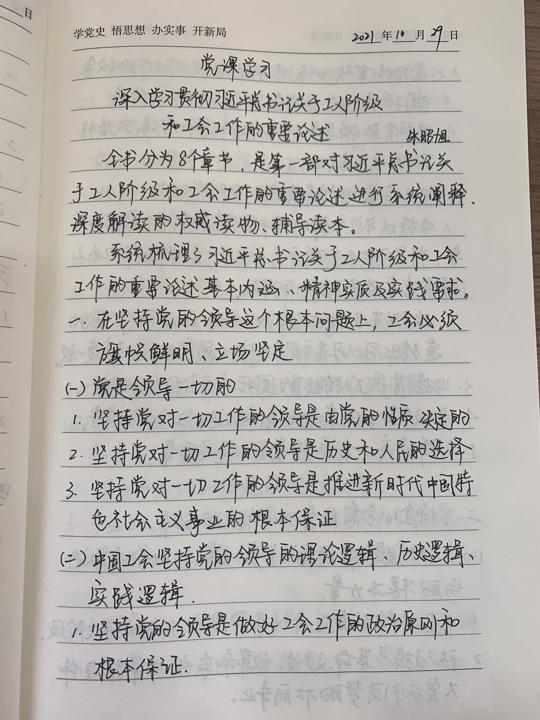 日
学党史 悟思想 办实事 开新局
2021 年 10 月 29 日
党课学习
深入学习贯彻习近平总书记关于工人阶级
和工会工作的重要论述 朱昭旭
全书分为8个章节，是第一部对习近平总书记关
于工人阶级和工会工作的重要论述进行系统阐释、
深度解读的权威读物、辅导读本。
系统梳理了习近平总书记关于工人阶级和工会
工作的重要论述基本内涵、精神实质及实践要求。
一、在坚持党的领导这个根本问题上，工会必须
旗帜鲜明、立场坚定
(一) 党是领导一切的
1. 坚持党对一切工作的领导是由党的性质决定的
2. 坚持党对一切工作的领导是历史和人民的选择
3. 坚持党对一切工作的领导是推进新时代中国特
色社会主义事业的根本保证
(二) 中国工会坚持党的领导的理论逻辑、历史逻辑、
实践逻辑.
1. 坚持党的领导是做好工会工作的政治原则和
根本保证.